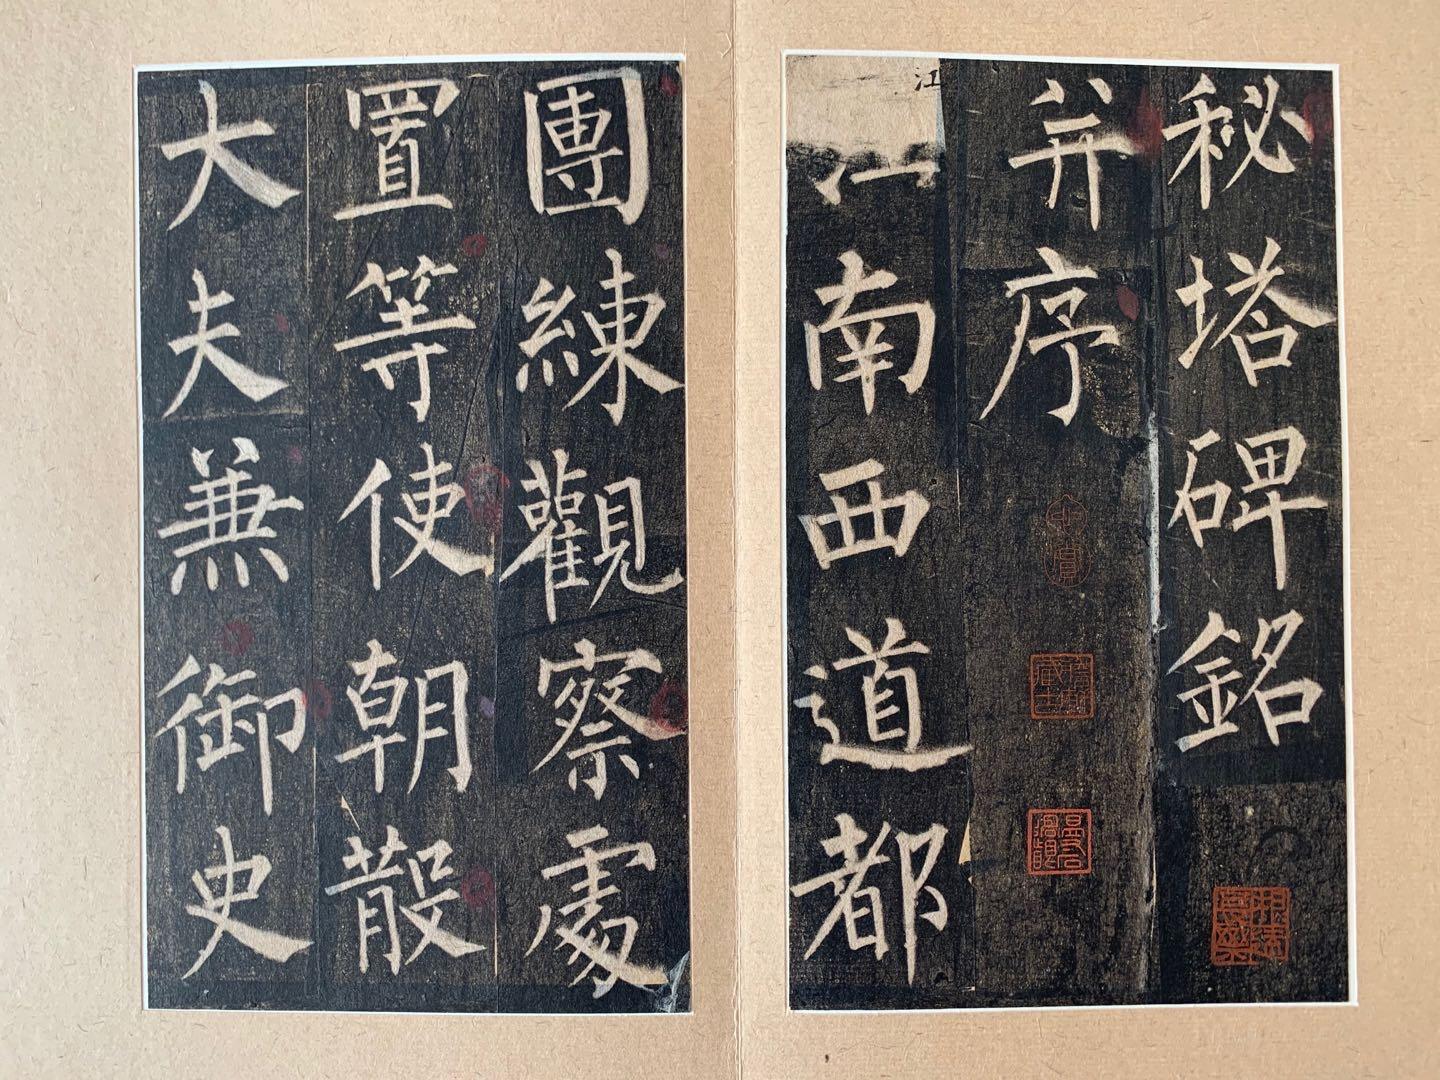 秘塔碑銘
并序
江
江南西道都
團練觀察處
置等使朝散
大夫兼御史